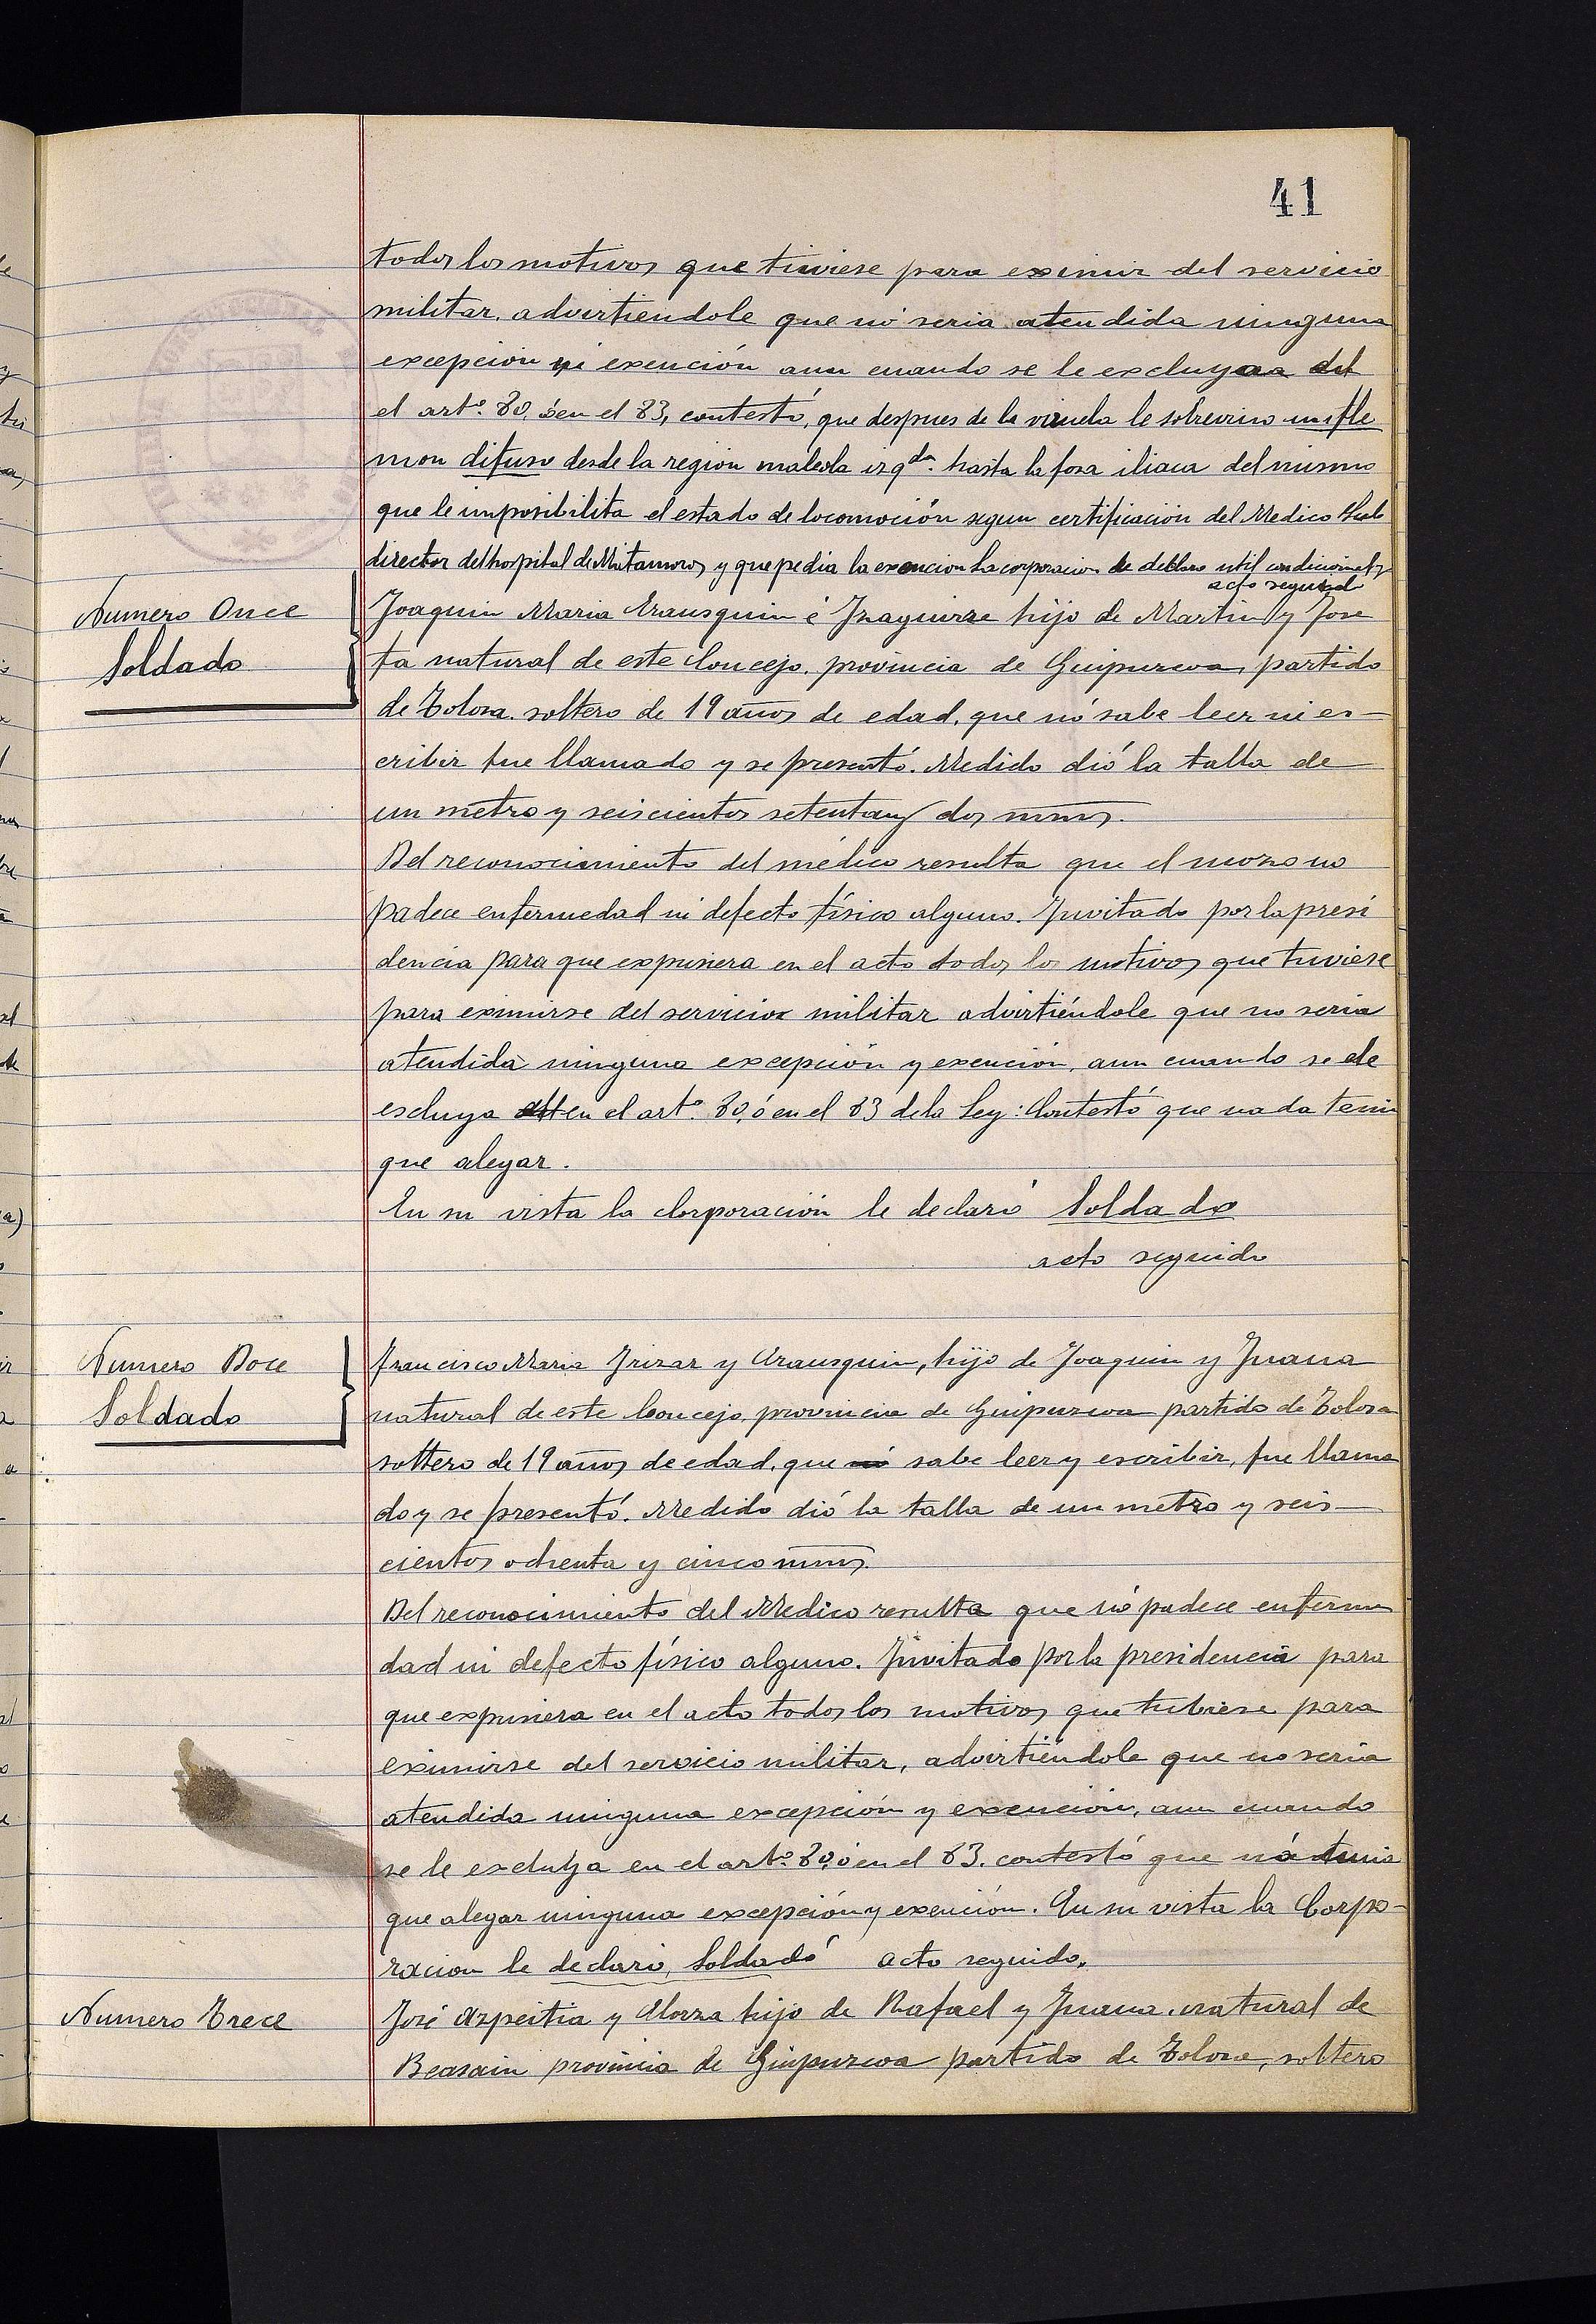 41
todos los motivos que tuviese para eximir del servicio
militar, advirtiendole que nó seria atendida ninguna
excepción ni exención aun cuando se le excluya
el artº. 80, ó en el 83, contestó, que despues de la viruela le sobrevino un fle
mon difuso desde la region maleola izqda. hasta la fosa iliaca del mismo
que le imposibilita el estado de locomoción segun certificación del Medico Sub
director del hospital de Matamoros y que pedia la exencion La corporacion le declaro util condicional
acto seguido
Numero Once
Soldado
Joaquin Maria Erausquin é Ynaguirre hijo de Martin y Jose
fa natural de este Concejo, provincia de Guipuzcoa, partido
de Tolosa, soltero de 19 años de edad, que nó sabe leer ni es-
cribir fue llamado y se presentó. Medido dió la talla de
un metro y seiscientos setenta y dos mms.
Del reconocimiento del médico resulta que el mozo no
padece enfermedad ni defecto físico alguno. Ynvitado por la presi
dencia para que expusiera en el acto todos los motivos que tuviese
para eximirse del servicio militar advirtiéndole que no seria
atendida ninguna excepción y exención, aun cuando se le
escluya en el artº. 80, ó en el 83 de la Ley: Contestó que nada tenia
que alegar.
En su vista la Corporación le declaró Soldado
acto seguido
Numero Doce
Soldado
Francisco Maria Yrizar y Erausquin, hijo de Joaquin y Juana
natural de este Concejo, provincia de Guipuzcoa partido de Tolosa
soltero de 19 años de edad, que nó sabe leer y escribir, fue llama
do y se presentó. Medido dió la talla de un metro y seis-
cientos ochenta y cinco mms.
Del reconocimiento del Medico resulta que nó padece enferme
dad ni defecto físico alguno. Ynvitado por la presidencia para
que expusiera en el acto todos los motivos que tubiese para
eximirse del servicio militar, advirtiéndole que no seria
atendida ninguna excepción y exención, aun cuando
se le excluya en el artº. 80, ó en el 83. contestó que nó tenia
que alegar ninguna excepción y exención. En su vista la Corpo-
racion le declaró, Soldado acto seguido.
Numero Trece
José Azpeitia y Alorza hijo de Rafael y Juana, natural de
Beasain provincia de Guipuzcoa partido de Tolosa, soltero